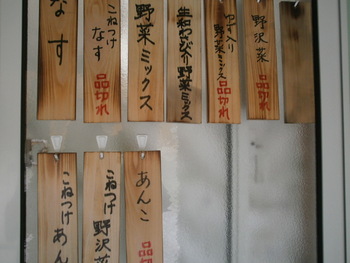 なす
こねつけ
なす
品切れ
野菜ミックス
生和わさび介野菜
ゆず入り
野菜ミックス
品切れ
野沢菜
品切れ
こねつけあん
こねつけ
野沢菜
あんこ
品切